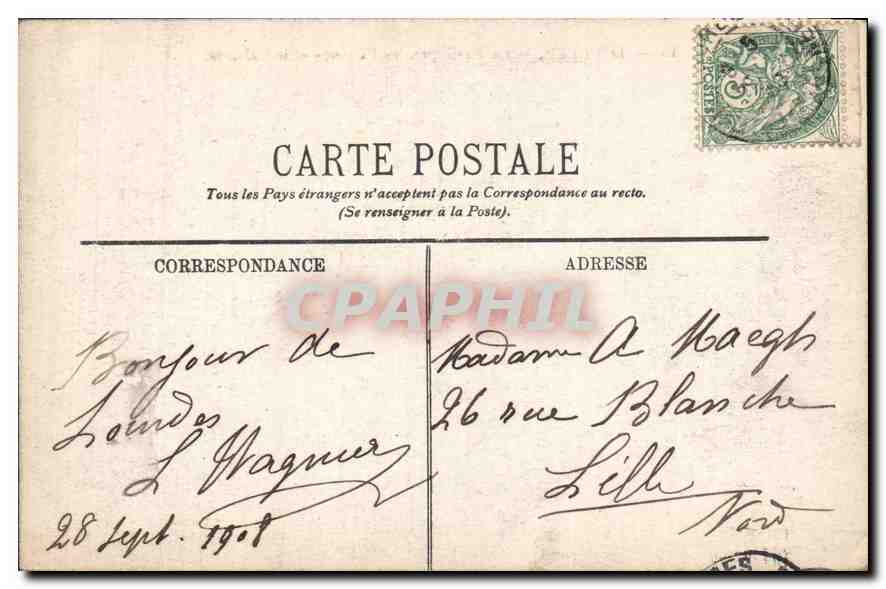 CARTE POSTALE
Tous les Pays étrangers n'acceptent pas la Correspondance au recto.
(Se renseigner à la Poste).
CORRESPONDANCE
ADRESSE
CPAPHIL
Bonjour de
Lourdes
L Wagnier
28 Sept. 1908
Madame A Maegh
26 rue Blanche
Lille
Nord
POSTES
5